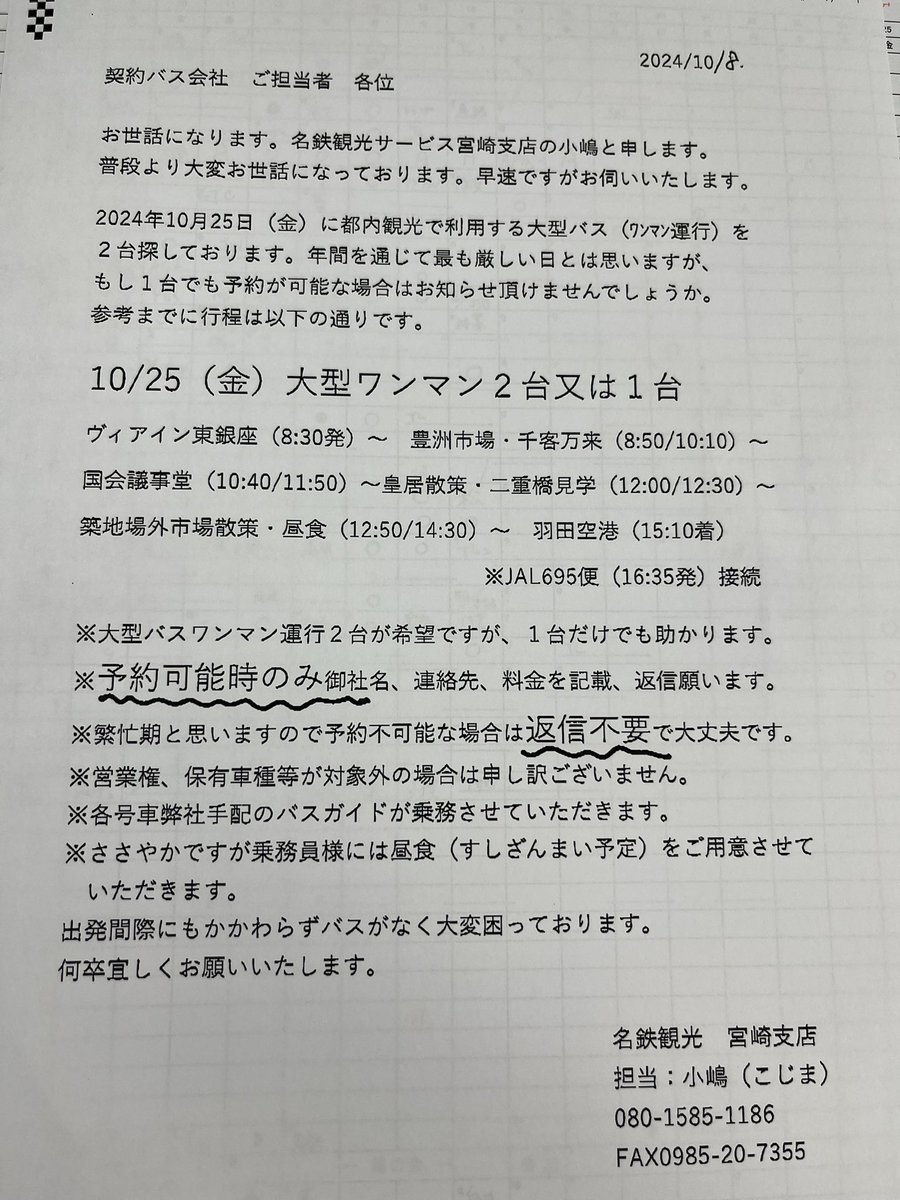 2024/10/8.
契約バス会社　ご担当者　各位
お世話になります。名鉄観光サービス宮崎支店の小嶋と申します。
普段より大変お世話になっております。早速ですがお伺いいたします。
2024年10月25日（金）に都内観光で利用する大型バス（ﾜﾝﾏﾝ運行）を
２台探しております。年間を通じて最も厳しい日とは思いますが、
もし１台でも予約が可能な場合はお知らせ頂けませんでしょうか。
参考までに行程は以下の通りです。
10/25（金）大型ワンマン２台又は１台
ヴィアイン東銀座（8:30発）～　豊洲市場・千客万来（8:50/10:10）～
国会議事堂（10:40/11:50）～皇居散策・二重橋見学（12:00/12:30）～
築地場外市場散策・昼食（12:50/14:30）～　羽田空港（15:10着）
※JAL695便（16:35発）接続
※大型バスワンマン運行２台が希望ですが、１台だけでも助かります。
※予約可能時のみ御社名、連絡先、料金を記載、返信願います。
※繁忙期と思いますので予約不可能な場合は返信不要で大丈夫です。
※営業権、保有車種等が対象外の場合は申し訳ございません。
※各号車弊社手配のバスガイドが乗務させていただきます。
※ささやかですが乗務員様には昼食（すしざんまい予定）をご用意させて
いただきます。
出発間際にもかかわらずバスがなく大変困っております。
何卒宜しくお願いいたします。
名鉄観光　宮崎支店
担当：小嶋（こじま）
080-1585-1186
FAX0985-20-7355